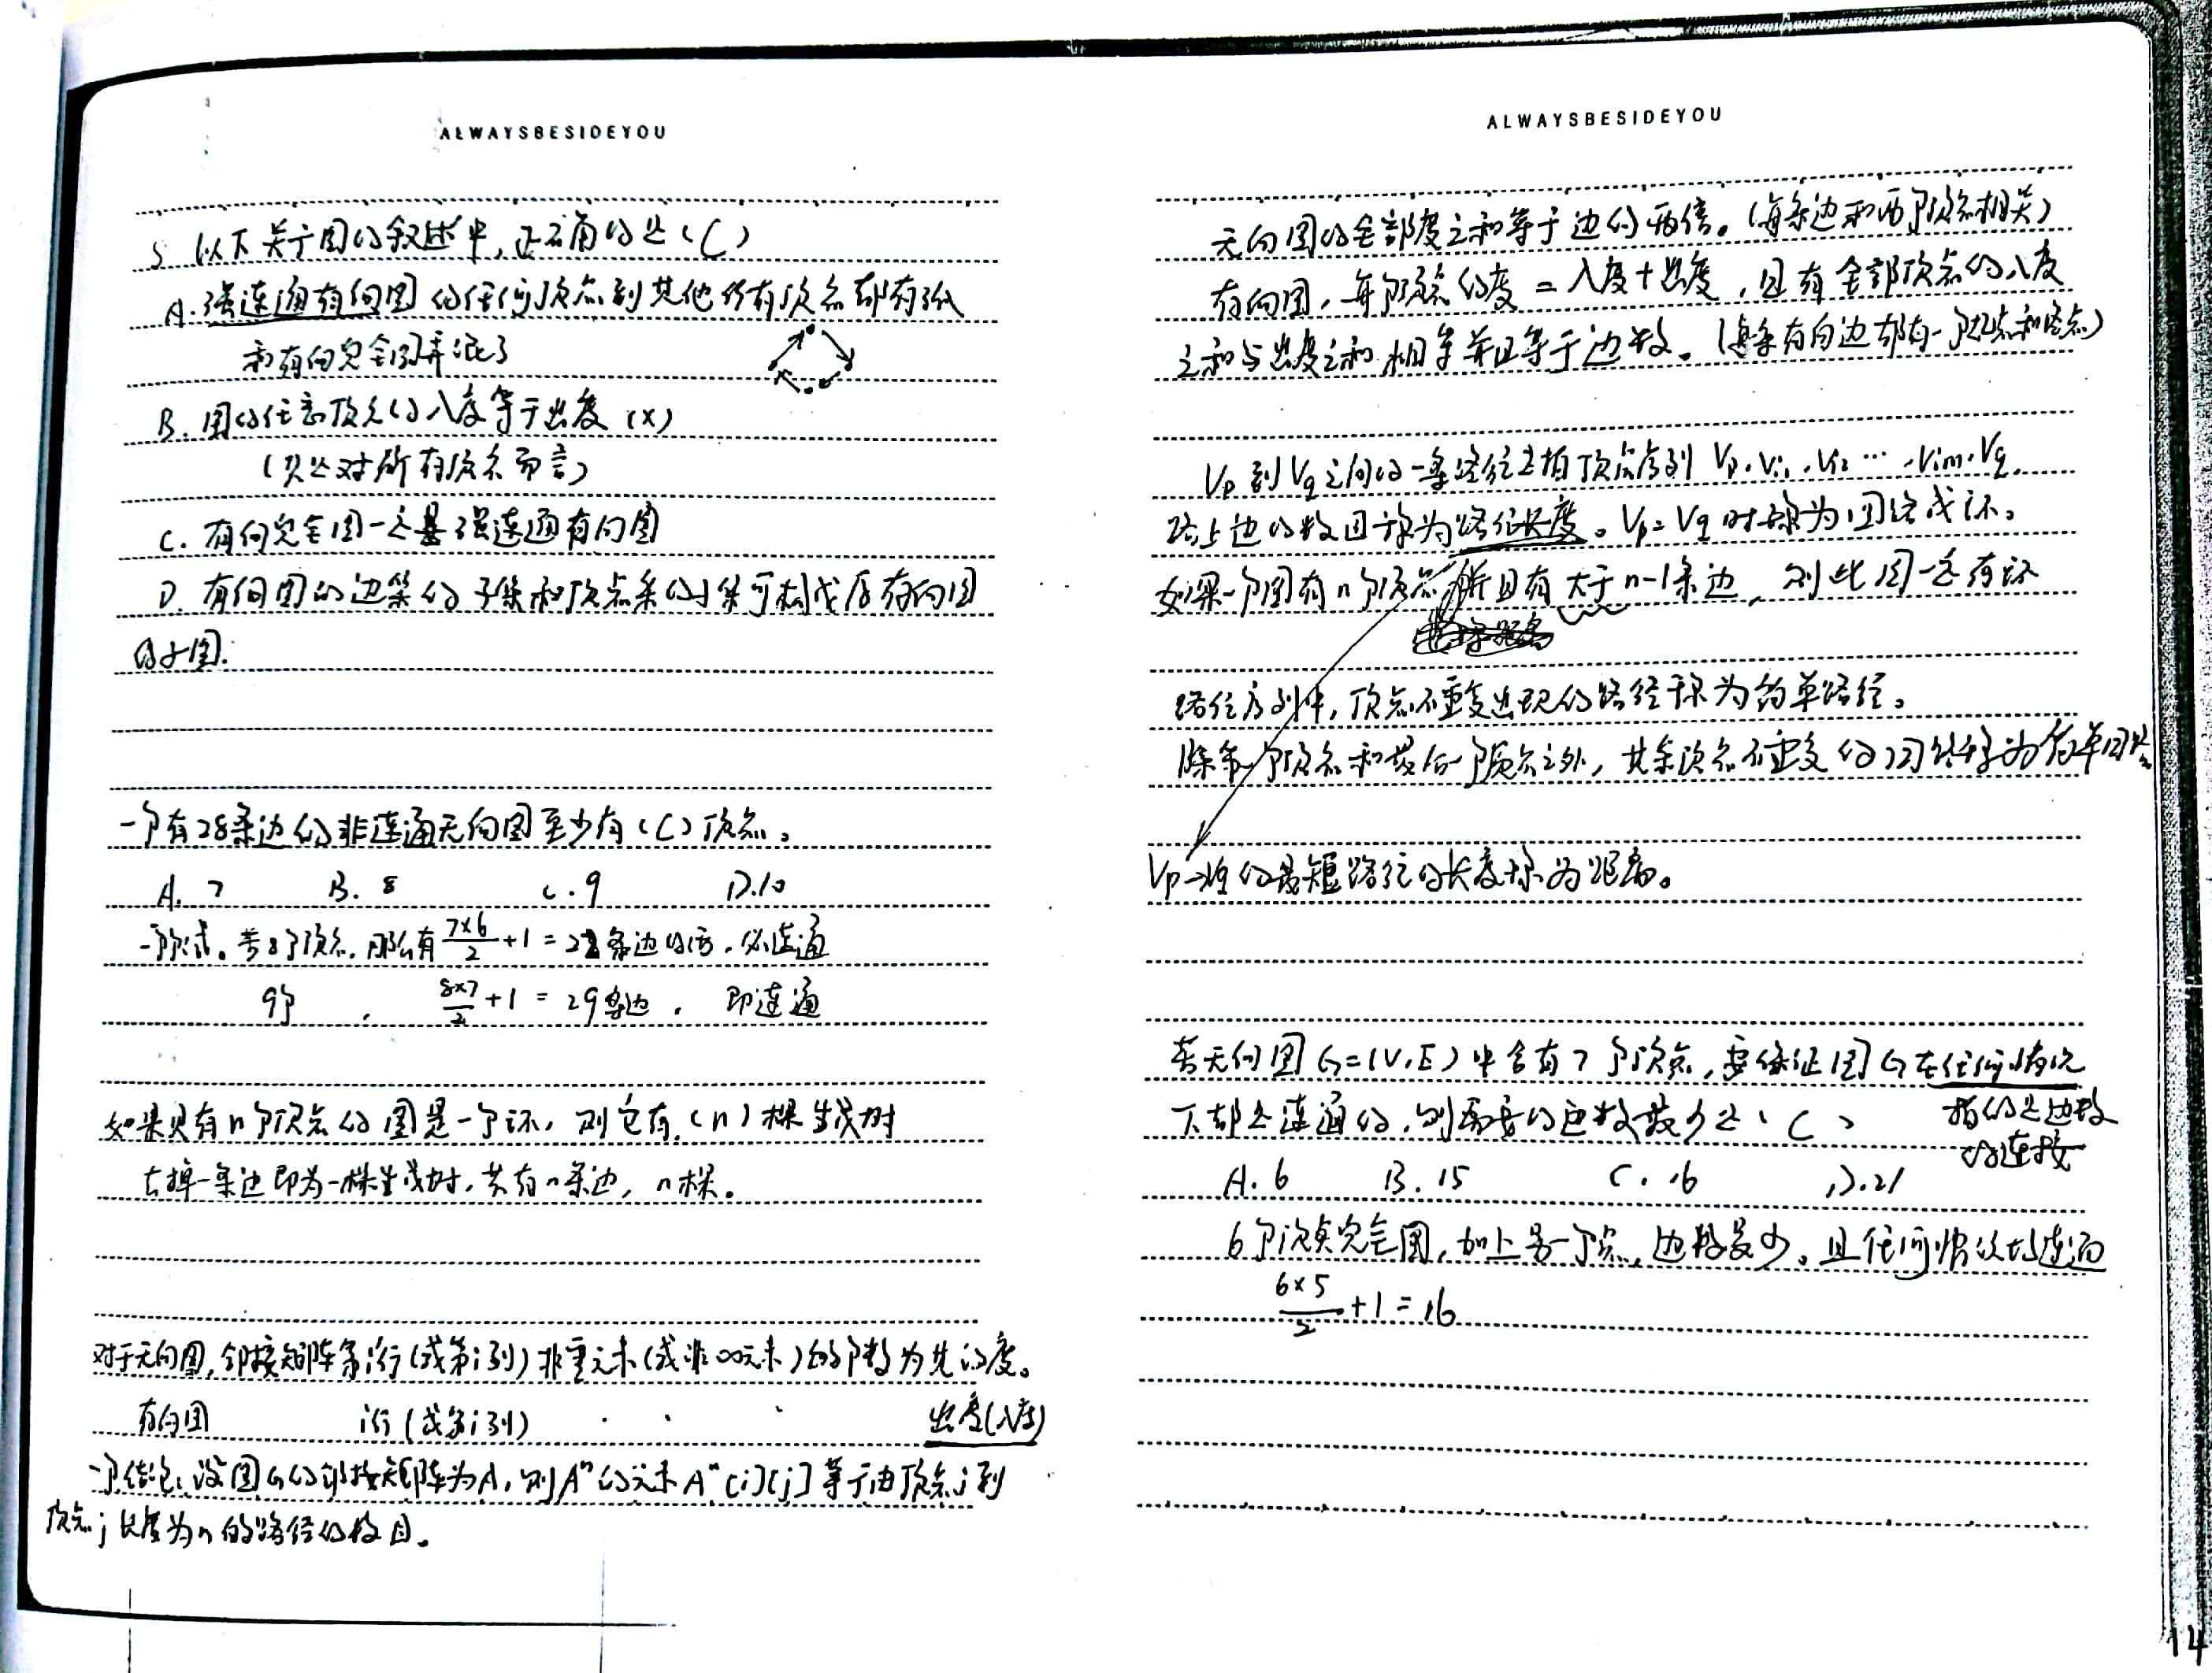 ALWAYSBESIDEYOU
5 以下关于图的叙述中,正确的是(C)
A.强连通有向图的任何顶点到其他所有顶点都有弧
和有向完全图弄混了
B.图的任意顶点的入度等于出度(x)
(只是对所有顶点而言)
C.有向完全图一定是强连通有向图
D.有向图的边集的子集和顶点集的子集可构成原有向图
的子图.
一个有28条边的非连通无向图至少有(C)顶点。
A.7 B.8 C.9 D.10
若8个顶点.那么有7×6/2+1=22条边的话.必连通
9个 . 8×7/2+1=29条边. 即连通
如果具有n个顶点的图是一个环,则它有(n)棵生成树
去掉一条边即为一棵生成树,共有n条边,n棵。
对于无向图,邻接矩阵第i行(或第i列)非零元素(或非∞元素)的个数为其的度。
有向图 i行(或第i列) . . 出度(入度)
一个结论:设图G的邻接矩阵为A,则Aⁿ的元素Aⁿ[i][j]等于由顶点i到
顶点j长度为n的路径的数目。
ALWAYSBESIDEYOU
无向图的全部度之和等于边的两倍。(每条边和两个顶点相关)
有向图,每个顶点的度=入度+出度,且有全部顶点的入度
之和与出度之和相等并且等于边数。(每条有向边都有一个起点和终点)
Vp到Vq之间的一条路径是指顶点序列Vp.Vi1.Vi2….Vim.Vq.
路上边的数目称为路径长度。Vp=Vq时称为回路或环。
如果一个图有n个顶点,并且有大于n-1条边,则此图一定有环
路径序列中,顶点不重复出现的路径称为简单路径。
除第一个顶点和最后一个顶点之外,其余顶点不重复的回路称为简单回路
Vp→Vq的最短路径的长度称为距离。
若无向图G=(V,E)中含有7个顶点,要保证图G在任何情况
下都是连通的,则需要的边数最少是(C)
指的是边数
的连接
A.6 B.15 C.16 D.21
6个顶点完全图,加上另一个点,边数最少。且任何情况均连通
6×5/2+1=16
14